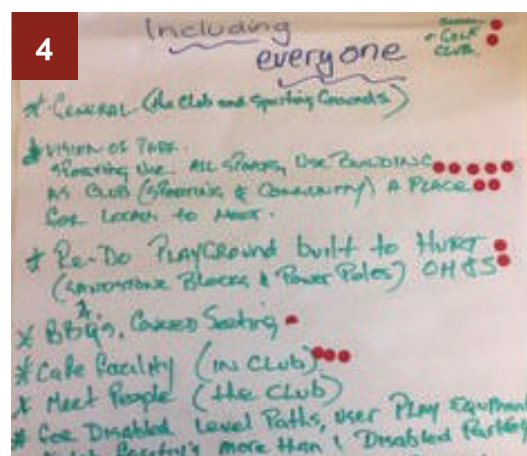 4
Including
everyone
GOLF
CLUB.
* GENERAL (the Club and Sporting Grounds)
* VISION OF PARK.
SPORTING USE ALL SPORTS, USE BUILDING
AS CLUB (SPORTING & COMMUNITY) A PLACE
FOR LOCALS TO MEET.
* Re-Do PLAYGROUND built to HURT
(SANDSTONE BLOCKS & Power Poles) OH&S
* BBQs, Covered Seating
* Cafe Facility (IN CLUB)
* Meet People (the CLUB)
* FOR Disabled Level Paths, user PLAY Equipment
more than 1 Disabled Parking